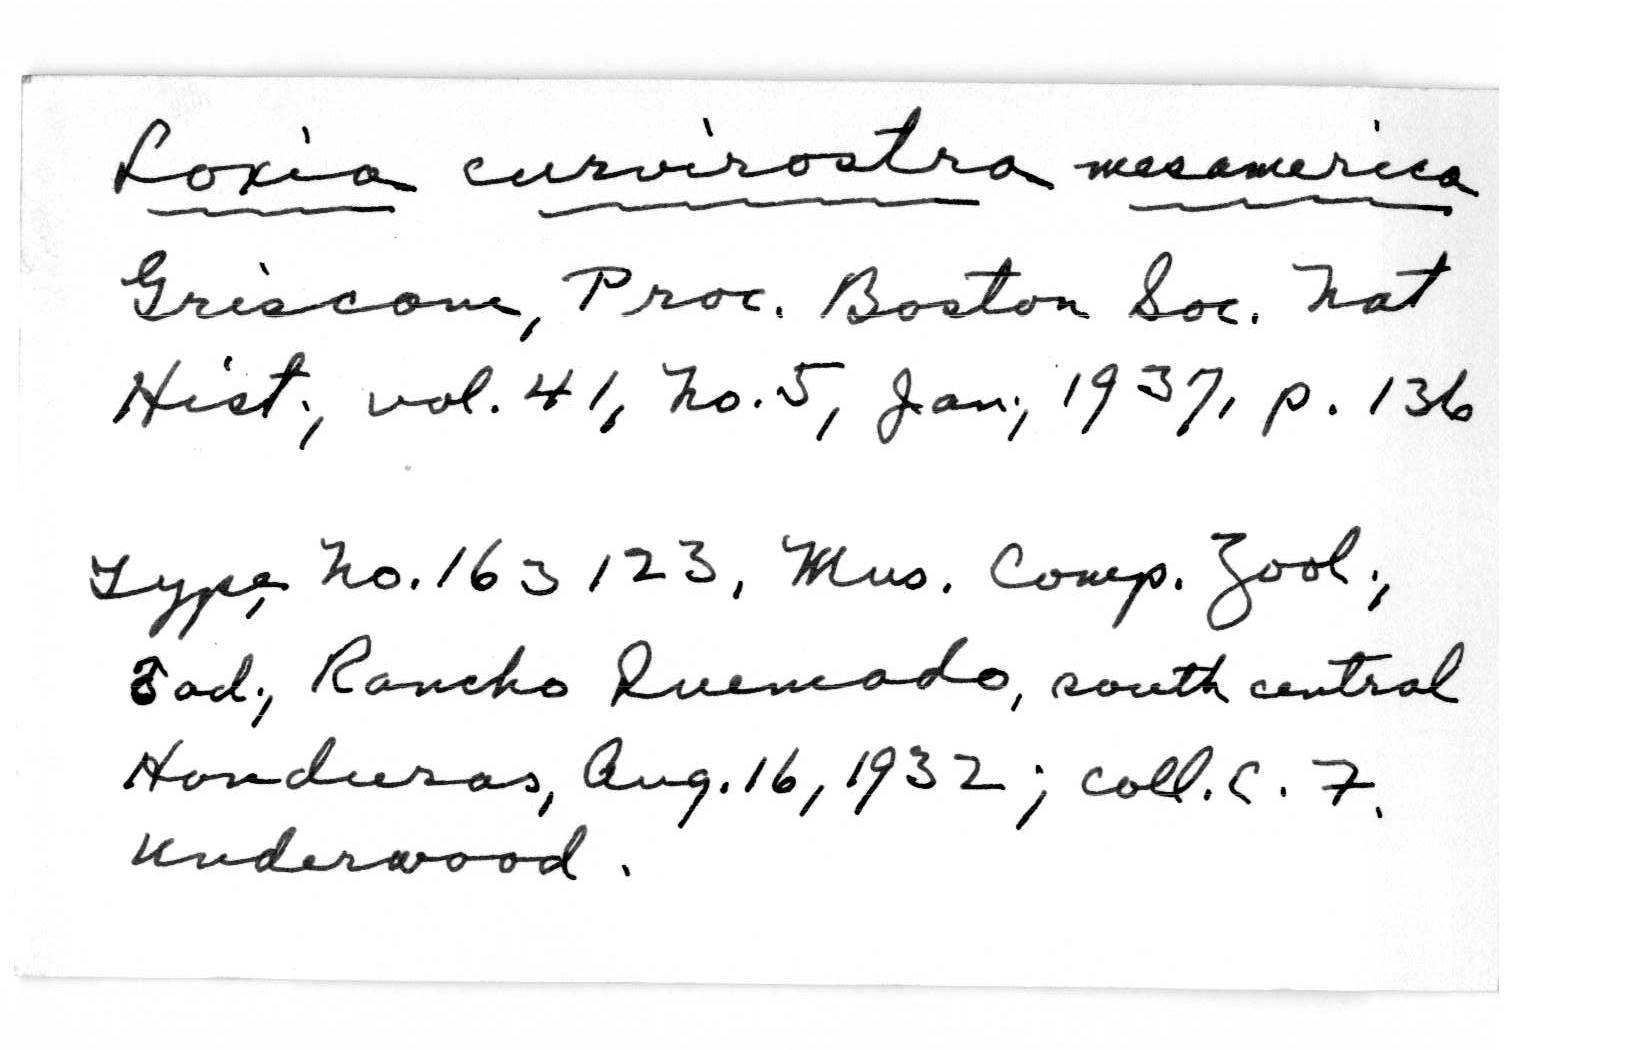 Loxia curvirostra mesamerica
Griscom, Proc. Boston Soc. Nat
Hist., vol. 41, No. 5, Jan., 1937, p. 136
Type, No. 163123, Mus. Comp. Zool.,
♂ ad., Rancho Quemado, south central
Honduras, Aug. 16, 1932; coll. C. F.
Underwood.